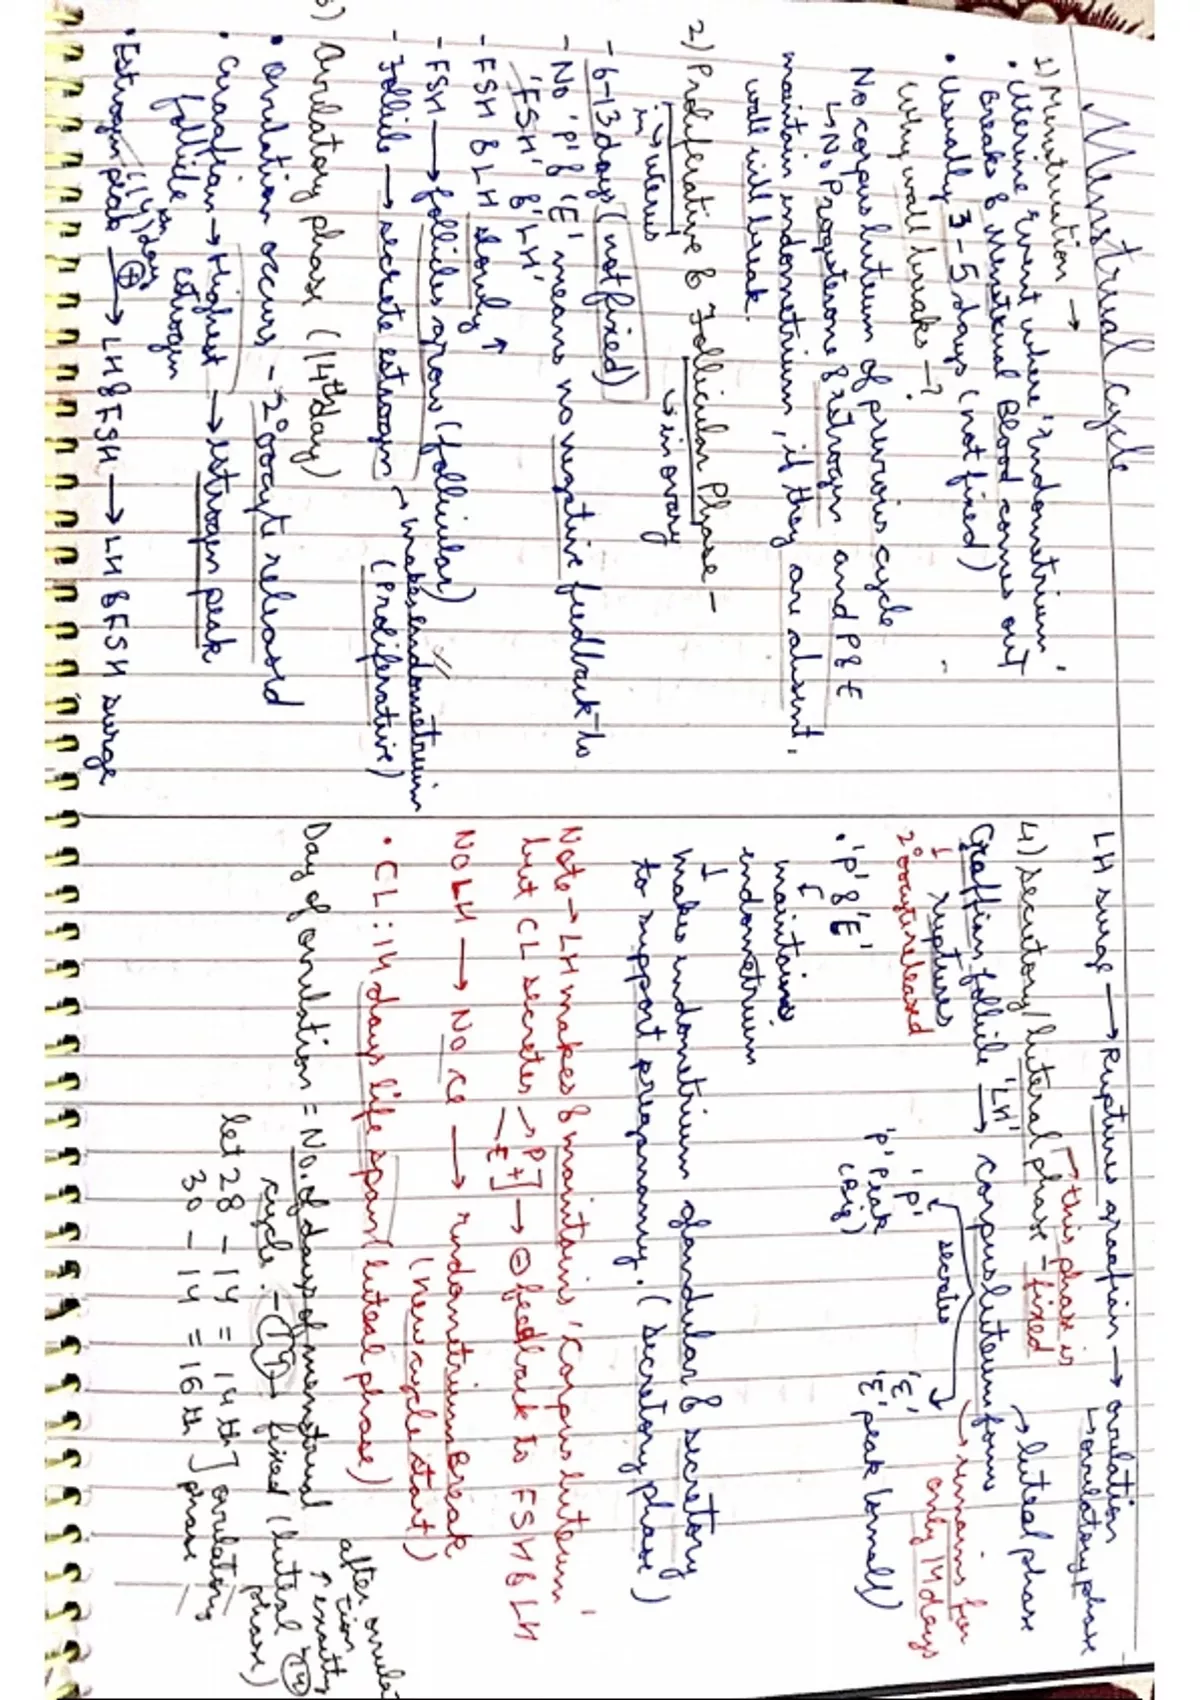 Menstrual cycle
1) Menstruation →
• Uterine event where 'endometrium'
Breaks & Menstrual Blood comes out
• Usually 3-5 days (not fixed)
Why wall breaks →?
No corpus luteum of previous cycle
↳ No Progesterone & estrogen and P & E
maintain endometrium, if they are absent,
wall will break.
2) Proliferative & Follicular Phase –
↳ in uterus
↳ in ovary
- 6-13 days (not fixed)
- No 'P' & 'E' means no negative feedback to
'FSH' & 'LH'
- FSH & LH slowly ↑
- FSH → follicles grow (follicular)
- Follicle → secrete estrogen → makes endometrium
(Proliferative)
3) Ovulatory phase (14th day)
• Ovulation occurs - 2° oocyte released
• Graafian → Highest → estrogen peak
follicle estrogen
(14) day
• Estrogen peak ⊕→ LH & FSH → LH & FSH surge
LH surge → Ruptures graafian → ovulation
↳ ovulatory phase
4) Secretory/luteal phase – fixed
→ this phase is
→ luteal phase
Graffian follicle 'LH'→ corpus luteum forms
↓ ruptures
2° oocyte released
→ remains for
only 14 days
secretes
'P' 'E'
'P' Peak 'E' peak (small)
(Big)
• 'P' & 'E'
↓
maintains
endometrium
↓
makes endometrium glandular & secretory
to support preganancy. (secretory phase)
Note → LH makes & maintains 'Corpus luteum'
but CL secretes → P, E] → ⊖ feedback to FSH & LH
NO LH → No CL → endometrium Break
(new cycle start)
• CL : 14 days life span (luteal phase)
Day of ovulation = No. of days of menstrual
cycle - (14) → fixed (luteal
phase)
let 28 - 14 = 14th] ovulatory
30 - 14 = 16th phase
after ovula
tion
↑ exactly
(14)